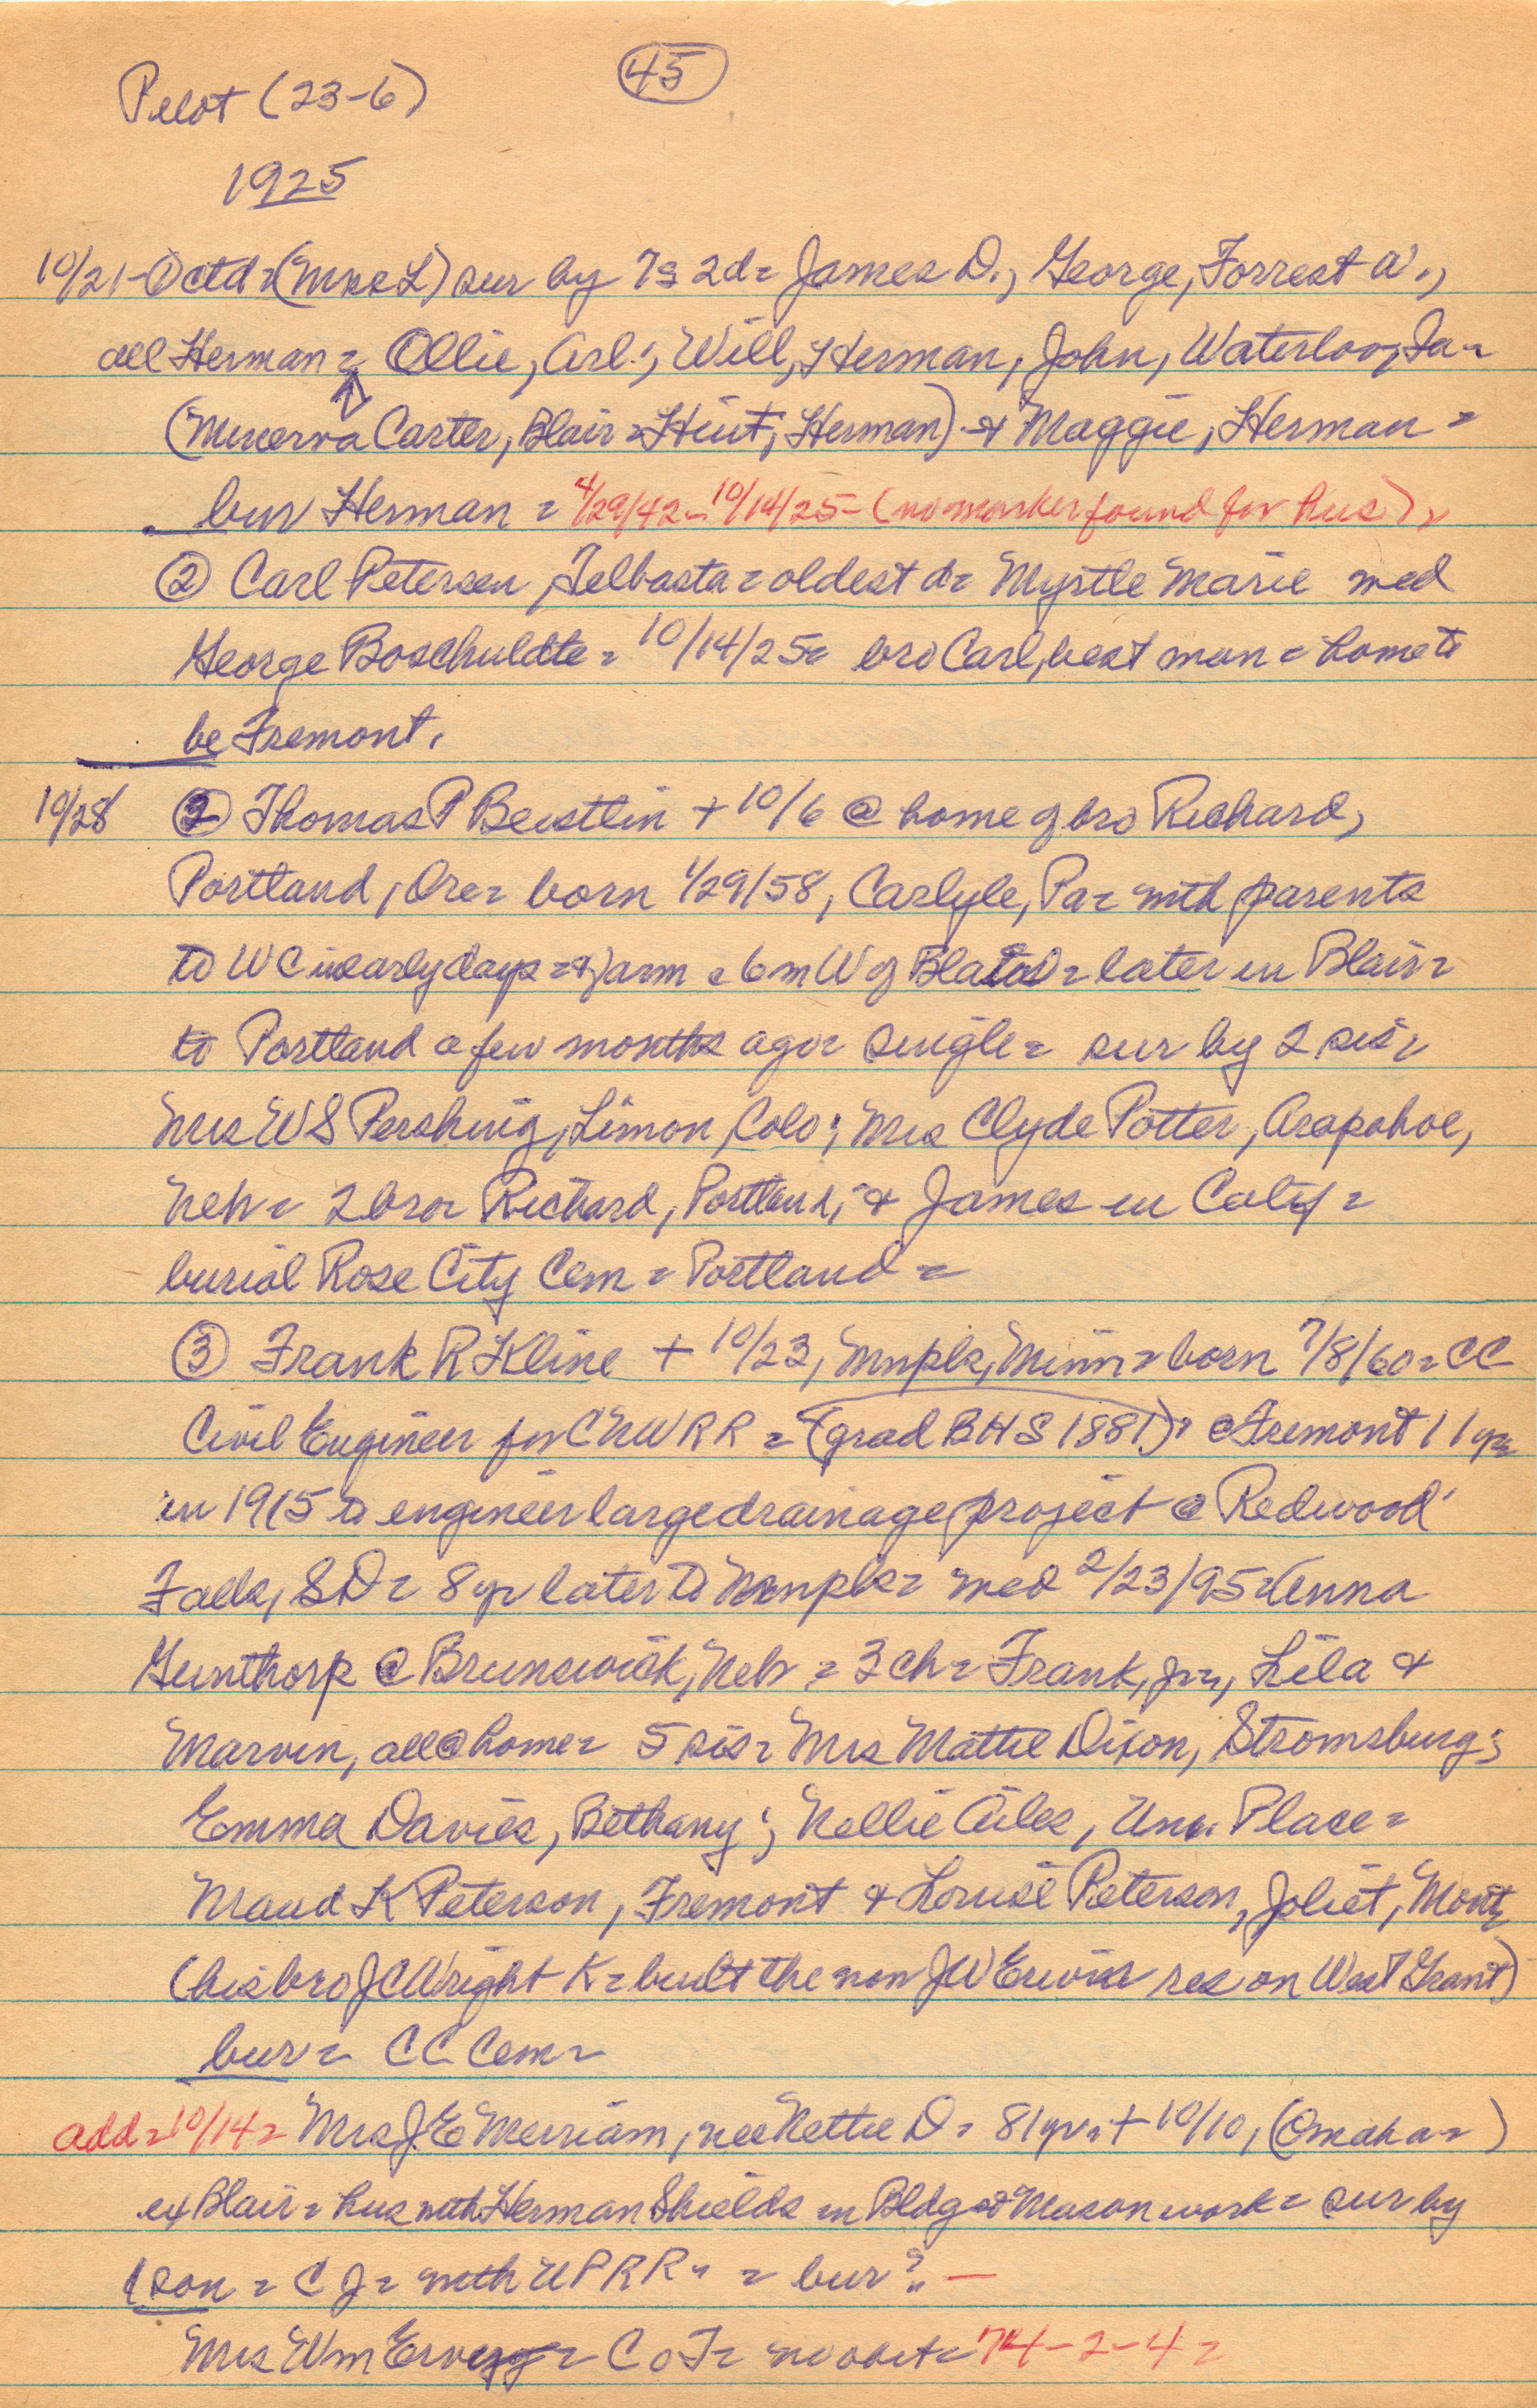 45
Pilot (23-6)
1925
10/21-① ctd = (Mrs L) sur by 7s 2d = James D., George, Forrest A.,
all Herman = Ollie, Arl.; Will, Herman, John, Waterloo, Ia =
(Minerva Carter, Blair = Hint; Herman) & Maggie, Herman =
bur Herman = 4/29/42 - 10/14/25 - (no marker found for hus) =
② Carl Petersen, Telbasta = oldest d = Myrtle Marie med
George Boschuldte = 10/14/25 = bro Carl, best man = home to
be Fremont.
10/28 ② Thomas P Beistlin + 10/6 @ home of bro Richard,
Portland, Ore = born 1/29/58, Carlyle, Pa = with parents
to WC in early days = farm 6 m W of = later in Blair =
to Portland a few months ago = single = sur by 2 sis =
Mrs WS Pershing, Limon, Colo; Mrs Clyde Potter, Arapahoe,
Neb = 2 bro = Richard, Portland; & James in Calif =
burial Rose City Cem = Portland =
③ Frank R Kline + 10/23, Mnpls, Minn = born 7/8/60 = CC
Civil Engineer for CNWRR = (grad BHS 1881) = @ Fremont 11 yr =
in 1915 to engineer large drainage project @ Redwood
Falls, SD = 8 yr later to Mnpls = med 2/23/95 = Anna
Gunthorp @ Brunswick, Neb = 3 ch = Frank, Jr, Lila &
Marvin, all @ home = 5 sis = Mrs Mattie Dixon, Stromsburg;
Emma Davies, Bethany; Nellie Ailes, Uni. Place =
Maud K Peterson, Fremont & Louise Peterson, Joliet, Mont
(his bro JC Wright K = built the now JW Erwin res on West Grant)
bur = CC Cem =
add = 10/14 = Mrs J.E Merriam, nee Nettie D = 81 yr. + 10/10, (Omaha =)
ex Blair = hus with Herman Shields in Bldg & Mason work = sur by
1 son = C J = with UPRR = bur? —
Mrs Wm = C of T = no obit = 74-2-4 =